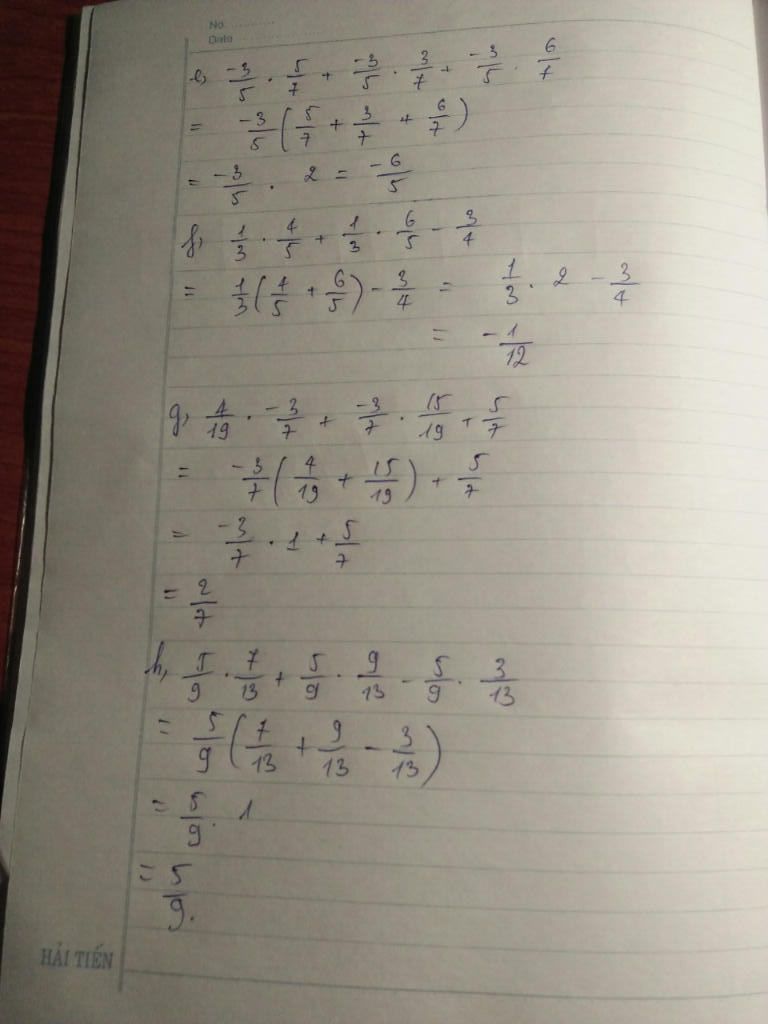 No.
Date
e, -3/5 . 5/7 + -3/5 . 3/7 + -3/5 . 6/7
= -3/5 (5/7 + 3/7 + 6/7)
= -3/5 . 2 = -6/5
f, 1/3 . 4/5 + 1/3 . 6/5 - 3/4
= 1/3 (4/5 + 6/5) - 3/4 = 1/3 . 2 - 3/4
= -1/12
g, 4/19 . -3/7 + -3/7 . 15/19 + 5/7
= -3/7 (4/19 + 15/19) + 5/7
= -3/7 . 1 + 5/7
= 2/7
h, 5/9 . 7/13 + 5/9 . 9/13 - 5/9 . 3/13
= 5/9 (7/13 + 9/13 - 3/13)
= 5/9 . 1
= 5/9.
HẢI TIẾN